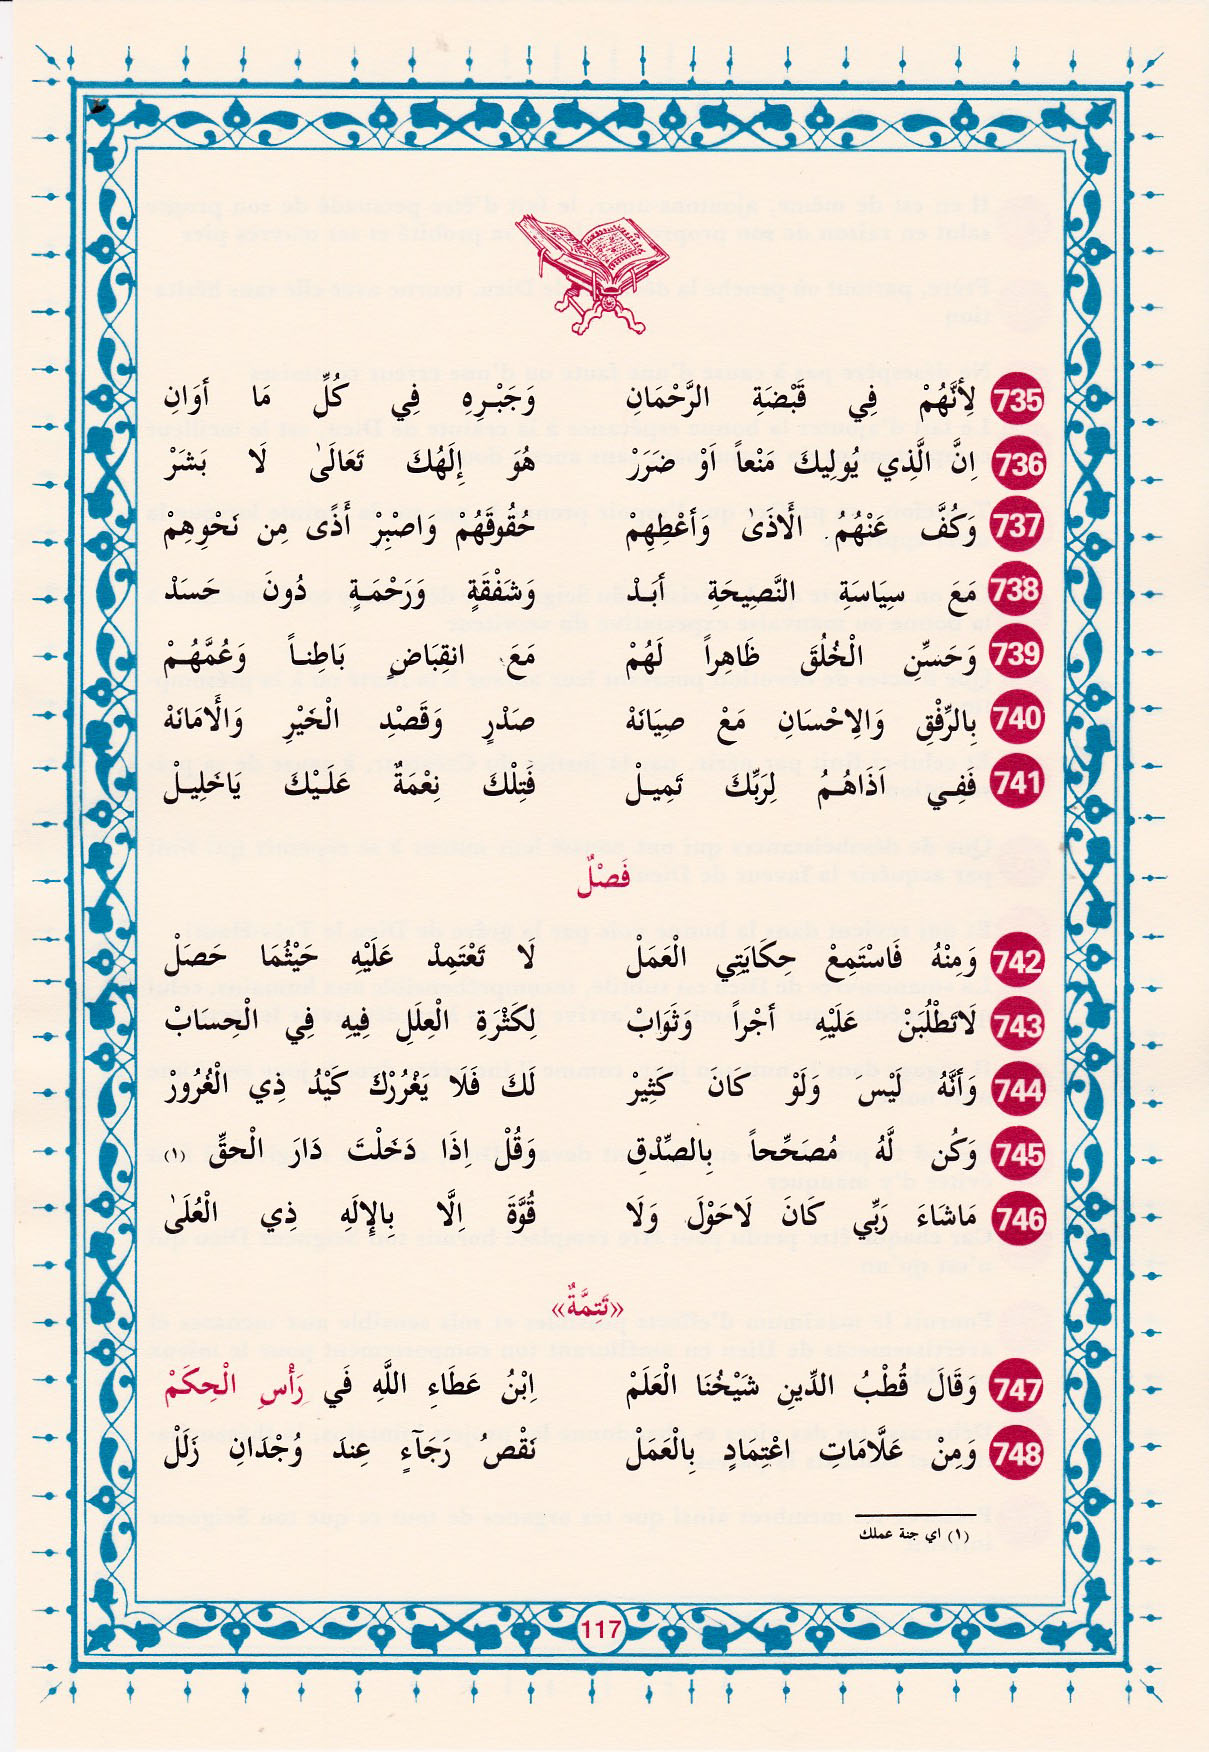 735 لِأَنَّهُمْ فِي قَبْضَةِ الرَّحْمَانِ وَجَبْرِهِ فِي كُلِّ مَا أَوَانِ
736 اِنَّ الَّذِي يُولِيكَ مَنْعاً اَوْ ضَرَرْ هُوَ إِلَهُكَ تَعَالَىٰ لَا بَشَرْ
737 وَكُفَّ عَنْهُمُ الْاَذَىٰ وَأَعْطِهِم حُقُوقَهُمْ وَاصْبِرْ أَذًى مِن نَحْوِهِمْ
738 مَعَ سِيَاسَةِ النَّصِيحَةِ أَبَدْ وَشَفْقَةٍ وَرَحْمَةٍ دُونَ حَسَدْ
739 وَحَسِّنِ الْخُلُقَ ظَاهِراً لَهُمْ مَعَ انقِبَاضٍ بَاطِناً وَعُمَّهُمْ
740 بِالرِّفْقِ وَالِاحْسَانِ مَعْ صِيَانَهْ صَدْرٍ وَقَصْدِ الْخَيْرِ وَالْأَمَانَهْ
741 فَفِي اَذَاهُمُ لِرَبِّكَ تَمِيلْ فَتِلْكَ نِعْمَةٌ عَلَيْكَ يَاخَلِيلْ
فَصْلٌ
742 وَمِنْهُ فَاسْتَمِعْ حِكَايَتِي الْعَمَلْ لَا تَعْتَمِدْ عَلَيْهِ حَيْثُمَا حَصَلْ
743 لَاتَطْلُبَنْ عَلَيْهِ أَجْراً وَثَوَابْ لِكَثْرَةِ الْعِلَلِ فِيهِ فِي الْحِسَابْ
744 وَأَنَّهُ لَيْسَ وَلَوْ كَانَ كَثِيرْ لَكَ فَلَا يَغْرُرْكَ كَيْدُ ذِي الْغُرُورْ
745 وَكُن لَّهُ مُصَحِّحاً بِالصِّدْقِ وَقُلْ اِذَا دَخَلْتَ دَارَ الْحقِّ (١)
746 مَاشَاءَ رَبِّي كَانَ لَاحَوْلَ وَلَا قُوَّةَ اِلَّا بِالإِلَهِ ذِي الْعُلَىٰ
«تَتِمَّةٌ»
747 وَقَالَ قُطْبُ الدِّينِ شَيْخُنَا الْعَلَمْ اِبْنُ عَطَاءِ اللَّهِ فَي رَأْسِ الْحِكَمْ
748 وَمِنْ عَلَّامَاتِ اعْتِمَادٍ بِالْعَمَلْ نَقْصُ رَجَآءٍ عِندَ وُجْدَانِ زَلَلْ
(١) اي جنة عملك
117